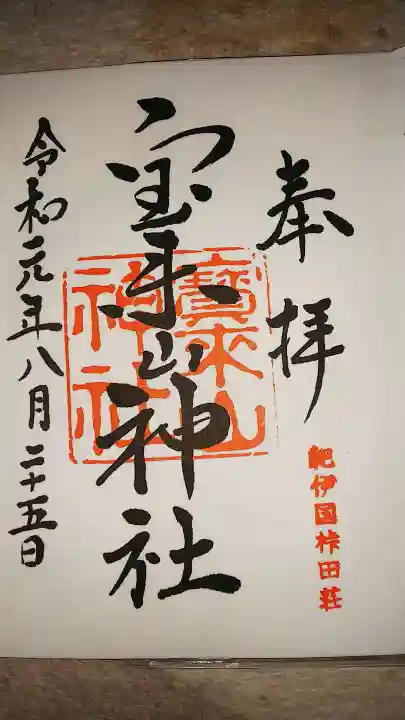 奉拝
紀伊国桛田荘
寶来山神社
宝来山神社
令和元年八月二十五日